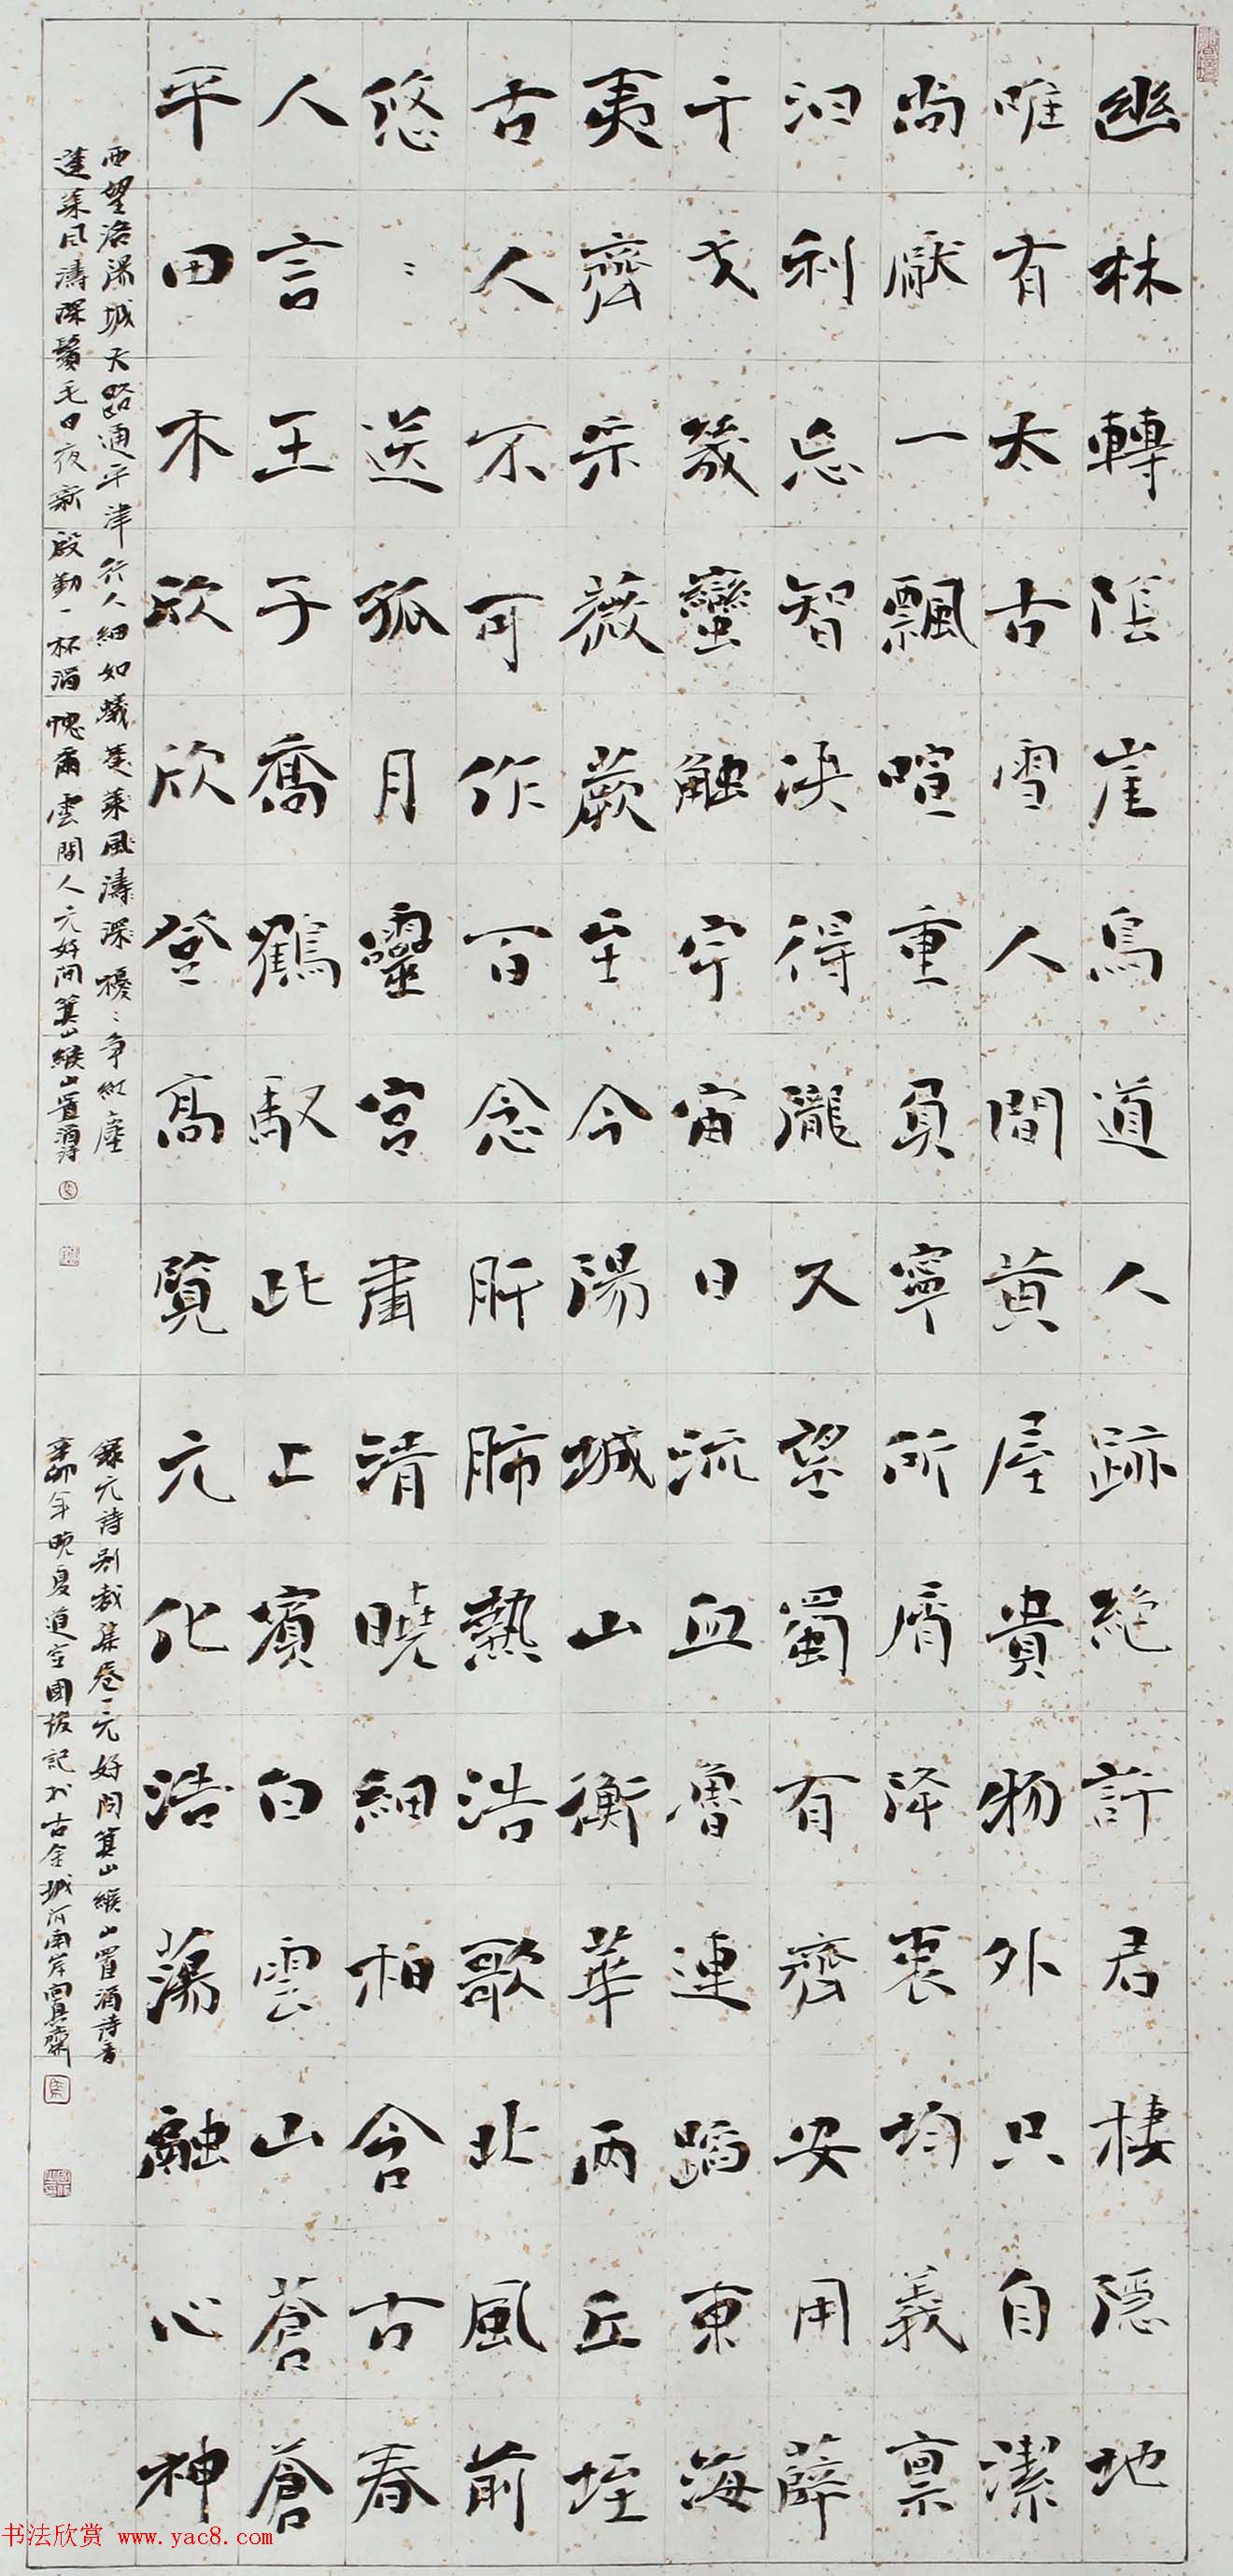 幽林轉陰崖鳥道人跡絕許君棲隱地
唯有太古雪人間黃屋貴物外只自潔
尚厭一飄喧重負寧所屑降衷均義稟
汩利忘智決得隴又望蜀有齊安用薛
干戈幾蠻觸宇宙日流血魯連蹈東海
夷齊采薇蕨至今陽城山衡華兩丘垤
古人不可作百念肝肺熱浩歌北風前
悠〻送孤月靈宮肅清曉細柏含古春
人言王子喬鶴馭此上賓白雲山蒼蒼
平田木欣欣登高覽元化浩蕩融心神
西望洛陽城天路通平津行人細如蟻蓬萊風濤深擾〻爭紅塵
蓬萊風濤深鬢毛日夜新殷勤一杯酒愧爾雲間人元好问箕山緱山置酒詩
錄元詩别裁集卷一元好问箕山緱山置酒詩首
辛卯年晚夏道空國俊記於古金城河南岸寘齋
书法欣赏 www.yac8.com